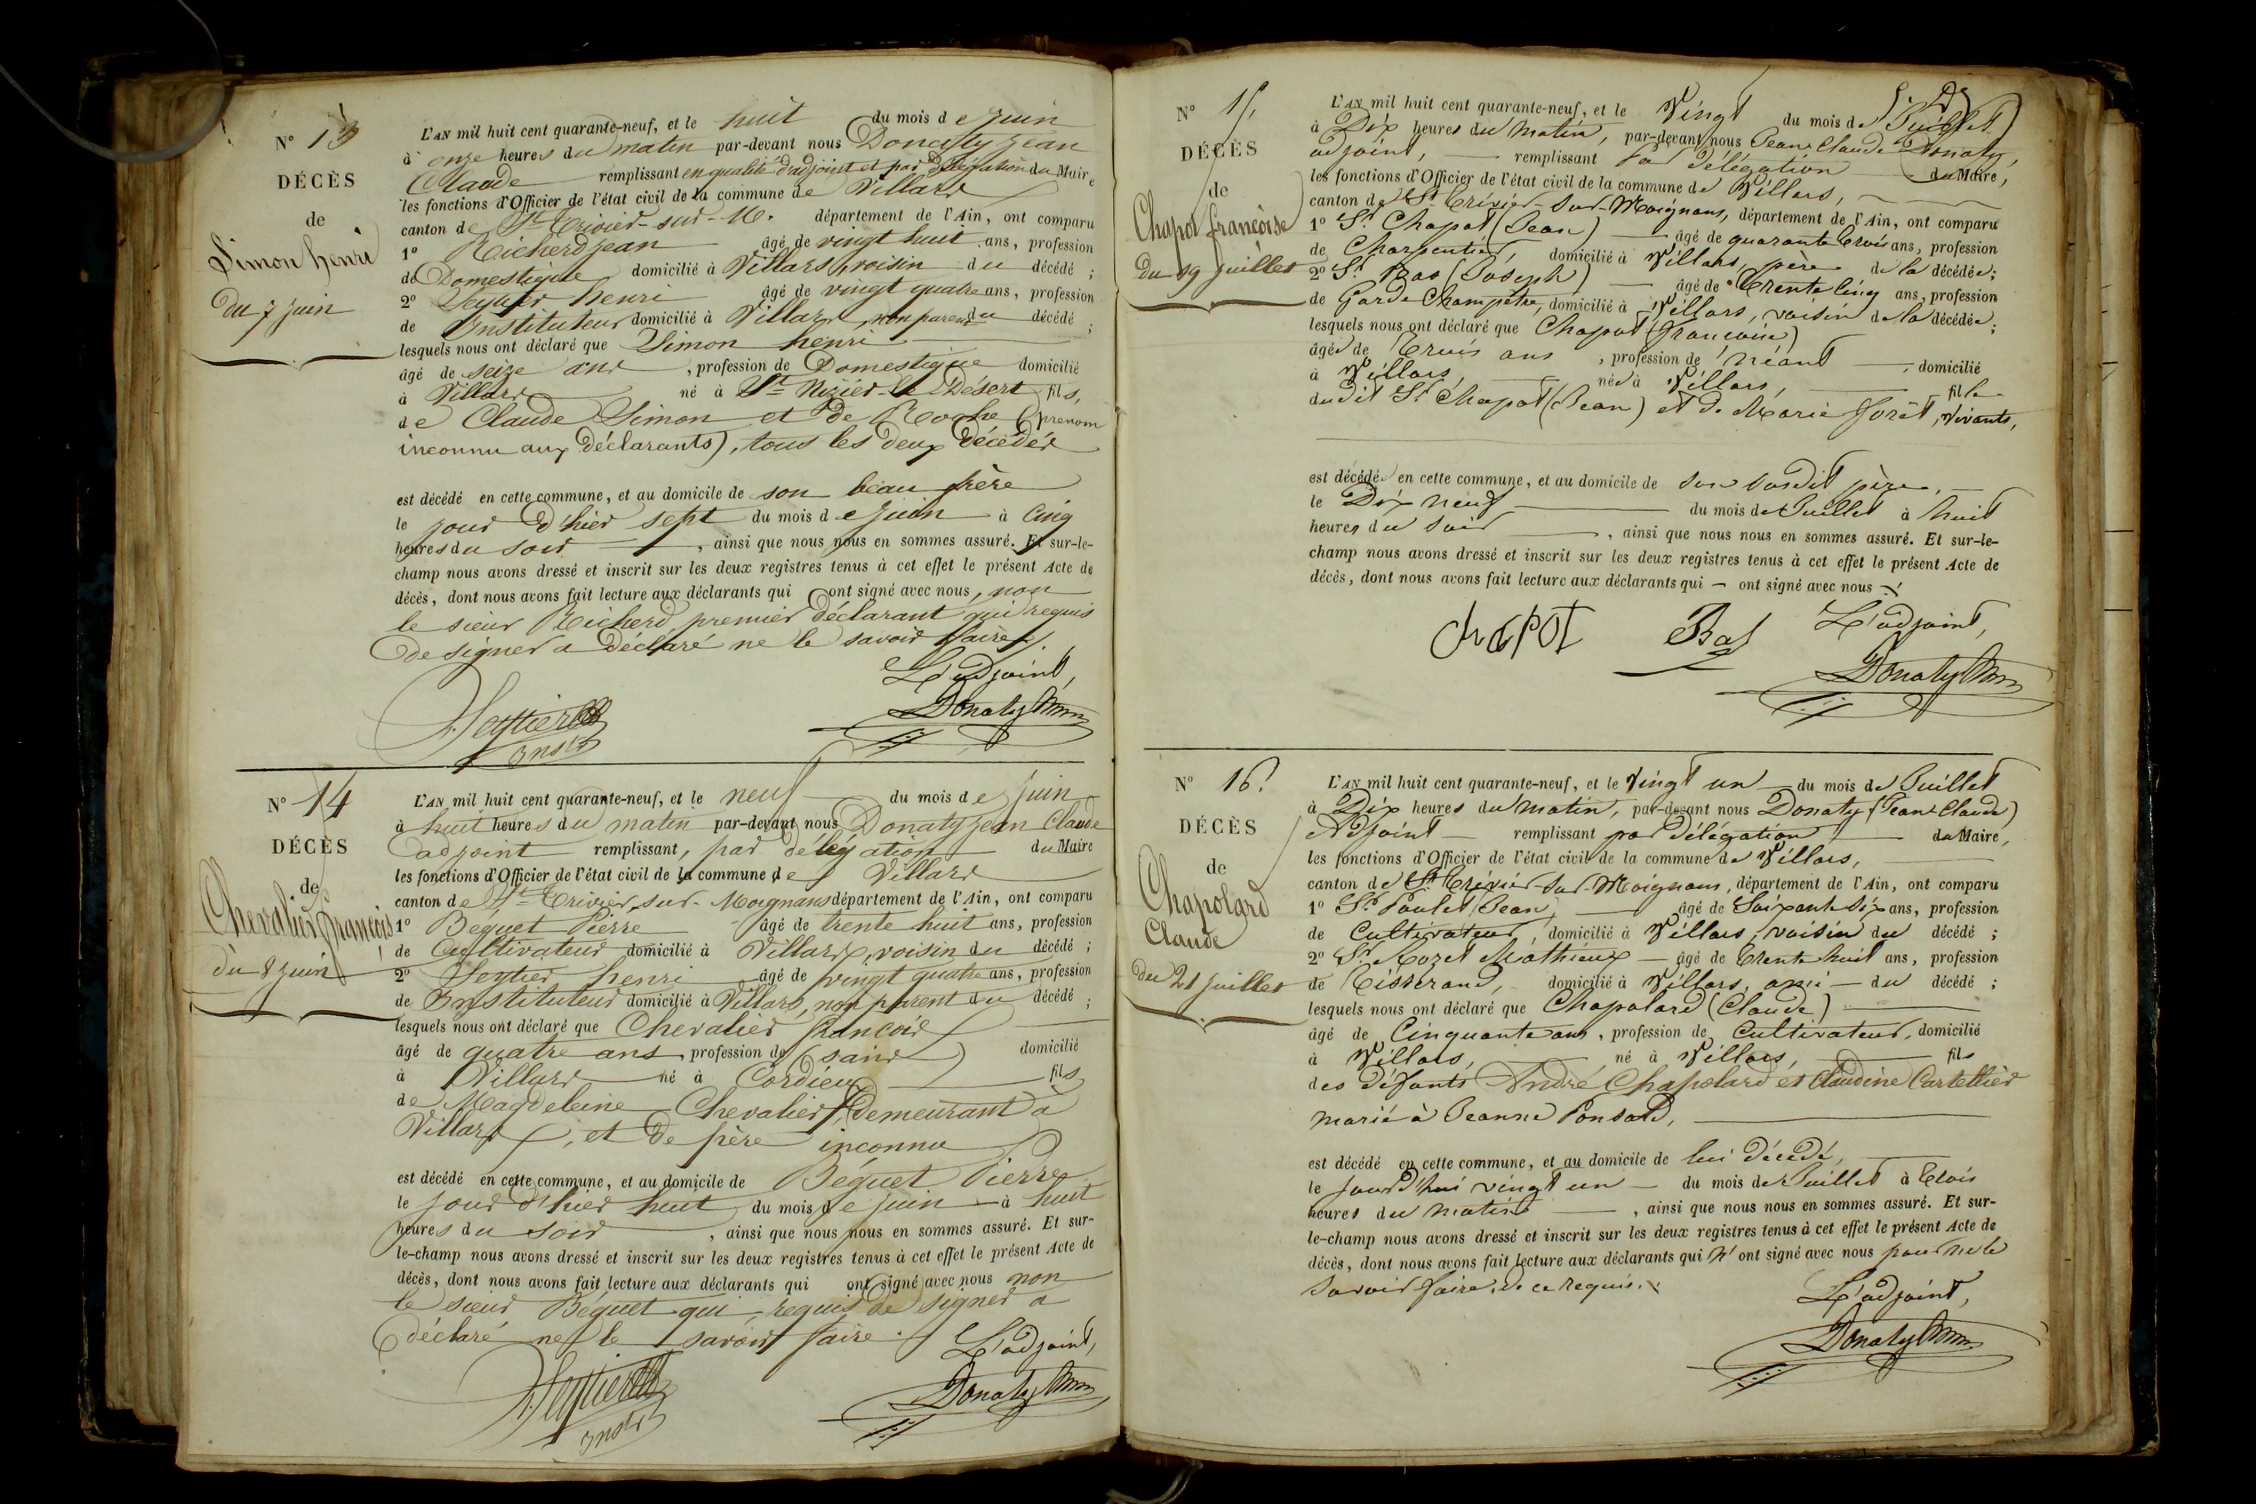 N° 13
DÉCÈS
de
Simon henri
du 7 juin
L'AN mil huit cent quarante-neuf, et le huit du mois de juin
à onze heures du matin par-devant nous Donaty jean
Claude remplissant en qualité d'adjoint et par délégation du Maire
les fonctions d'Officier de l'état civil de la commune de Villars
canton de St Trivier-sur-M. département de l'Ain, ont comparu
1° Richerd jean âgé de vingt huit ans, profession
de Domestique domicilié à Villars, voisin du décédé ;
2° Seytier henri âgé de vingt quatre ans, profession
de Instituteur domicilié à Villars, non parent du décédé ;
lesquels nous ont déclaré que Simon henri
âgé de seize ans, profession de Domestique domicilié
à Villars né à St Nizier-le-Désert fils,
de Claude Simon et de Roche (prenom
inconnu aux déclarants), tous les deux décédés
est décédé en cette commune, et au domicile de son beau frère
le jour d'hier sept du mois de juin à cinq
heures du soir, ainsi que nous nous en sommes assuré. Et sur-le-
champ nous avons dressé et inscrit sur les deux registres tenus à cet effet le présent Acte de
décès, dont nous avons fait lecture aux déclarants qui ont signé avec nous, non
le sieur Richerd premier déclarant qui requis
de signer a déclaré ne le savoir faire.
L'adjoint,
Seytier
Instr
Donaty
N° 14
DÉCÈS
de
Chevalier françois
du 8 juin
L'AN mil huit cent quarante-neuf, et le neuf du mois de juin
à huit heures du matin par-devant nous Donaty jean Claude
adjoint remplissant, par délégation du Maire
les fonctions d'Officier de l'état civil de la commune de Villars
canton de St Trivier-sur-Moignans département de l'Ain, ont comparu
1° Béguet Pierre âgé de trente huit ans, profession
de Cultivateur domicilié à Villars, voisin du décédé ;
2° Seytier henri âgé de vingt quatre ans, profession
de Instituteur domicilié à Villars, non parent du décédé ;
lesquels nous ont déclaré que Chevalier françois
âgé de quatre ans, profession de sans domicilié
à Villars né à Cordieux fils
de Magdeleine Chevalier, demeurant à
Villars, et de père inconnu
est décédé en cette commune, et au domicile de Béguet Pierre
le jour d'hier huit du mois de juin à huit
heures du soir, ainsi que nous nous en sommes assuré. Et sur-
le-champ nous avons dressé et inscrit sur les deux registres tenus à cet effet le présent Acte de
décès, dont nous avons fait lecture aux déclarants qui ont signé avec nous non
le sieur Béguet qui requis de signer a
déclaré ne le savoir faire.
L'adjoint,
Seytier
Instr
Donaty
N° 15,
DÉCÈS
de
Chapot françoise
du 19 juillet
L'AN mil huit cent quarante-neuf, et le Vingt du mois de Juillet
à Dix heures du matin, par-devant nous Jean Claude Donaty,
adjoint, remplissant Par délégation du Maire,
les fonctions d'Officier de l'état civil de la commune de Villars,
canton de St Trivier-sur-Moignans, département de l'Ain, ont comparu
1° Sr Chapot (Jean) âgé de quarante trois ans, profession
de Charpentier, domicilié à Villars, père de la décédée ;
2° Sr Bas (Joseph) âgé de Trente cinq ans, profession
de Garde Champêtre, domicilié à Villars, voisin de la décédée ;
lesquels nous ont déclaré que Chapot (françoise)
âgée de Trois ans, profession de néant, domicilié
à Villars, née à Villars, fille
dudit Sr Chapot (Jean) et de Marie forêt, vivants,
est décédée en cette commune, et au domicile de son susdit père,
le Dix neuf du mois de Juillet à huit
heures du soir, ainsi que nous nous en sommes assuré. Et sur-le-
champ nous avons dressé et inscrit sur les deux registres tenus à cet effet le présent Acte de
décès, dont nous avons fait lecture aux déclarants qui ont signé avec nous.
L'adjoint,
chapot Bas Donaty
N° 16.
DÉCÈS
de
Chapolard
Claude
du 21 juillet
L'AN mil huit cent quarante-neuf, et le Vingt un du mois de Juillet
à Dix heures du matin, par-devant nous Donaty (Jean Claude)
Adjoint remplissant par délégation du Maire,
les fonctions d'Officier de l'état civil de la commune de Villars,
canton de St Trivier-sur-Moignans, département de l'Ain, ont comparu
1° Sr Poulet (Jean) âgé de Soixante dix ans, profession
de Cultivateur, domicilié à Villars, voisin du décédé ;
2° Sr Mozet Mathieux âgé de Trente huit ans, profession
de Tisserand, domicilié à Villars, ami du décédé ;
lesquels nous ont déclaré que Chapolard (Claude)
âgé de Cinquante ans, profession de Cultivateur, domicilié
à Villars, né à Villars, fils
des défunts André Chapolard et Claudine Cartellier
marié à Jeanne Ponsard,
est décédé en cette commune, et au domicile de lui décédé,
le jourd'hui vingt un du mois de Juillet à Trois
heures du matin, ainsi que nous nous en sommes assuré. Et sur-
le-champ nous avons dressé et inscrit sur les deux registres tenus à cet effet le présent Acte de
décès, dont nous avons fait lecture aux déclarants qui n'ont signé avec nous pour ne le
savoir faire, de ce requis.
L'adjoint,
Donaty